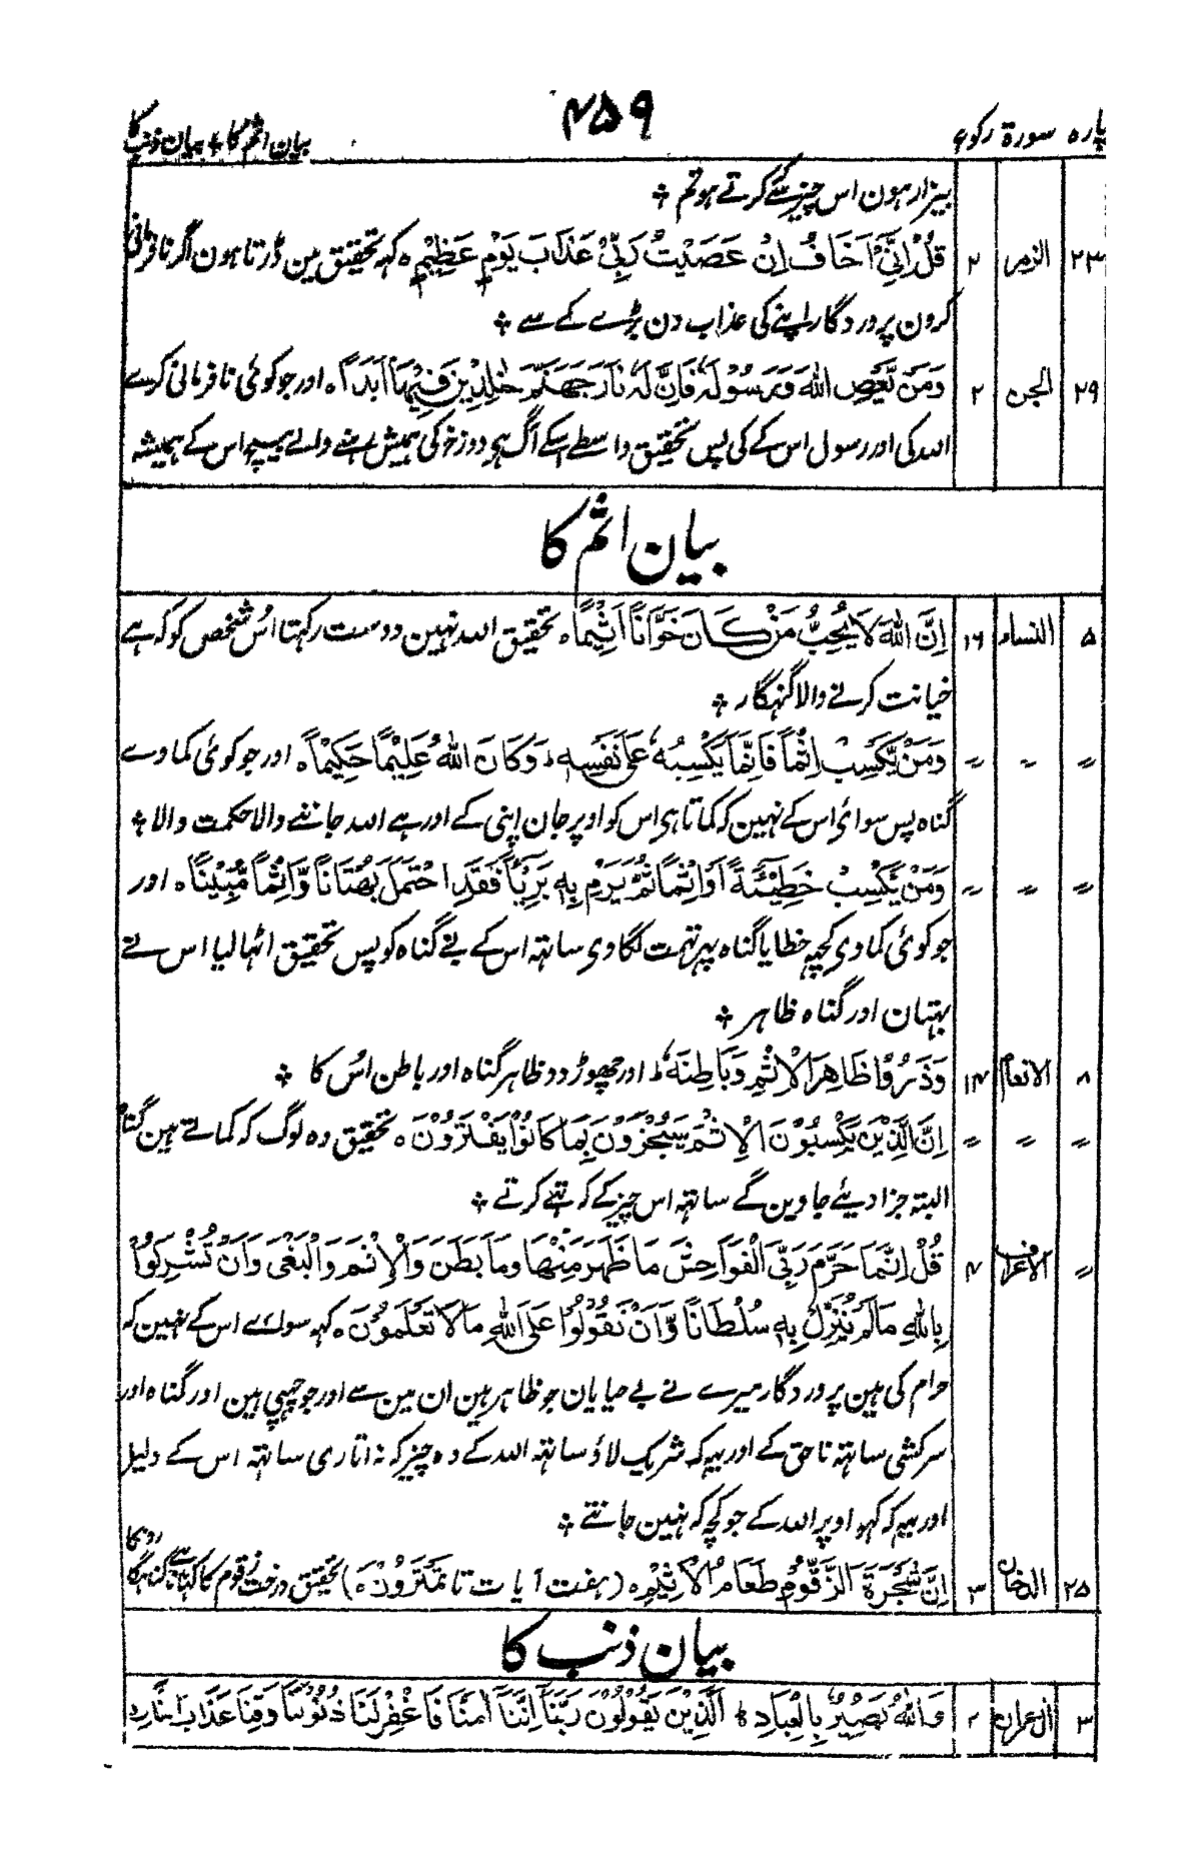 پارہ سورۃ رکوع ۴۵۹ بیان اثم کا + بیان ذنب کا
بیزار ہون اس چیز سے کرتے ہو تم ؞
۲۳ الزمر ۲ قُلْ اِنِّیْۤ اَخَافُ اِنْ عَصَیْتُ رَبِّیْ عَذَابَ یَوْمٍ عَظِیْمٍ ہ کہہ تحقیق مین ڈرتا ہون اگر نافرمانی
کرون پروردگار اپنے کی عذاب دن بڑے کے سے ؞
۲۹ الجن ۲ وَمَنْ یَّعْصِ اللّٰهَ وَرَسُوْلَهٗ فَاِنَّ لَهٗ نَارَ جَهَنَّمَ خٰلِدِیْنَ فِیْهَاۤ اَبَدًا ہ اور جو کوئی نافرمانی کرے
اللہ کی اور رسول اس کے کی پس تحقیق واسطے اسکے آگ ہو دوزخ کی ہمیش رہنے والے بیچ اس کے ہمیشہ
بیان اثم کا
۵ النساء ۱۶ اِنَّ اللّٰهَ لَا یُحِبُّ مَنْ كَانَ خَوَّانًا اَثِیْمًا ہ تحقیق اللہ نہین دوست رکہتا اُس شخص کو کہ ہے
خیانت کرنے والا گنہگار ؞
〃 〃 〃 وَمَنْ یَّكْسِبْ اِثْمًا فَاِنَّمَا یَكْسِبُهٗ عَلٰی نَفْسِهٖ ط وَكَانَ اللّٰهُ عَلِیْمًا حَكِیْمًا ہ اور جو کوئی کماوے
گناہ پس سوائے اس کے نہین کہ کماتا ہی اس کو اوپر جان اپنی کے اور ہے اللہ جاننے والا حکمت والا ؞
〃 〃 〃 وَمَنْ یَّكْسِبْ خَطِیْٓئَةً اَوْ اِثْمًا ثُمَّ یَرْمِ بِهٖ بَرِیْٓئًا فَقَدِ احْتَمَلَ بُهْتَانًا وَّاِثْمًا مُّبِیْنًا ہ اور
جو کوئی کماوی کچہہ خطا یا گناہ پہر تہمت لگاوی ساتہہ اس کے بے گناہ کو پس تحقیق اٹہا لیا اس نے
بہتان اور گناہ ظاہر ؞
۸ الانعام ۱۴ وَذَرُوْا ظَاهِرَ الْاِثْمِ وَبَاطِنَهٗ ط اور چھوڑ دو ظاہر گناہ اور باطن اُس کا ؞
〃 〃 〃 اِنَّ الَّذِیْنَ یَكْسِبُوْنَ الْاِثْمَ سَیُجْزَوْنَ بِمَا كَانُوْا یَقْتَرِفُوْنَ ہ تحقیق وہ لوگ کہ کماتے ہین گناہ
البتہ جزا دیئے جاوین گے ساتہہ اس چیز کے کہ تہے کرتے ؞
〃 الاعراف ۴ قُلْ اِنَّمَا حَرَّمَ رَبِّیَ الْفَوَاحِشَ مَا ظَهَرَ مِنْهَا وَمَا بَطَنَ وَالْاِثْمَ وَالْبَغْیَ وَاَنْ تُشْرِكُوْا
بِاللّٰهِ مَا لَمْ یُنَزِّلْ بِهٖ سُلْطَانًا وَّاَنْ تَقُوْلُوْا عَلَی اللّٰهِ مَا لَا تَعْلَمُوْنَ ہ کہو سواے اس کے نہین کہ
حرام کی ہین پروردگار میرے نے بے حیایان جو ظاہر ہین ان مین سے اور جو چھپی ہین اور گناہ اور
سرکشی ساتہہ ناحق کے اور یہہ کہ شریک لاؤ ساتہہ اللہ کے وہ چیز کہ نہ اتاری ساتہہ اس کے دلیل
اور یہہ کہ کہو اوپر اللہ کے جو کچہہ کہ نہین جانتے ؞
۲۵ الدخان ۳ اِنَّ شَجَرَةَ الزَّقُّوْمِ طَعَامُ الْاَثِیْمِ ہ (ہفت آیات تا تَمْتَرُوْنَ ہ) تحقیق درخت زقوم کا کہانا ہے گنہگارونکا
بیان ذنب کا
۳ ال عمران ۲ وَاللّٰهُ بَصِیْرٌۢ بِالْعِبَادِ ہ اَلَّذِیْنَ یَقُوْلُوْنَ رَبَّنَاۤ اِنَّنَاۤ اٰمَنَّا فَاغْفِرْ لَنَا ذُنُوْبَنَا وَقِنَا عَذَابَ النَّارِ ہ